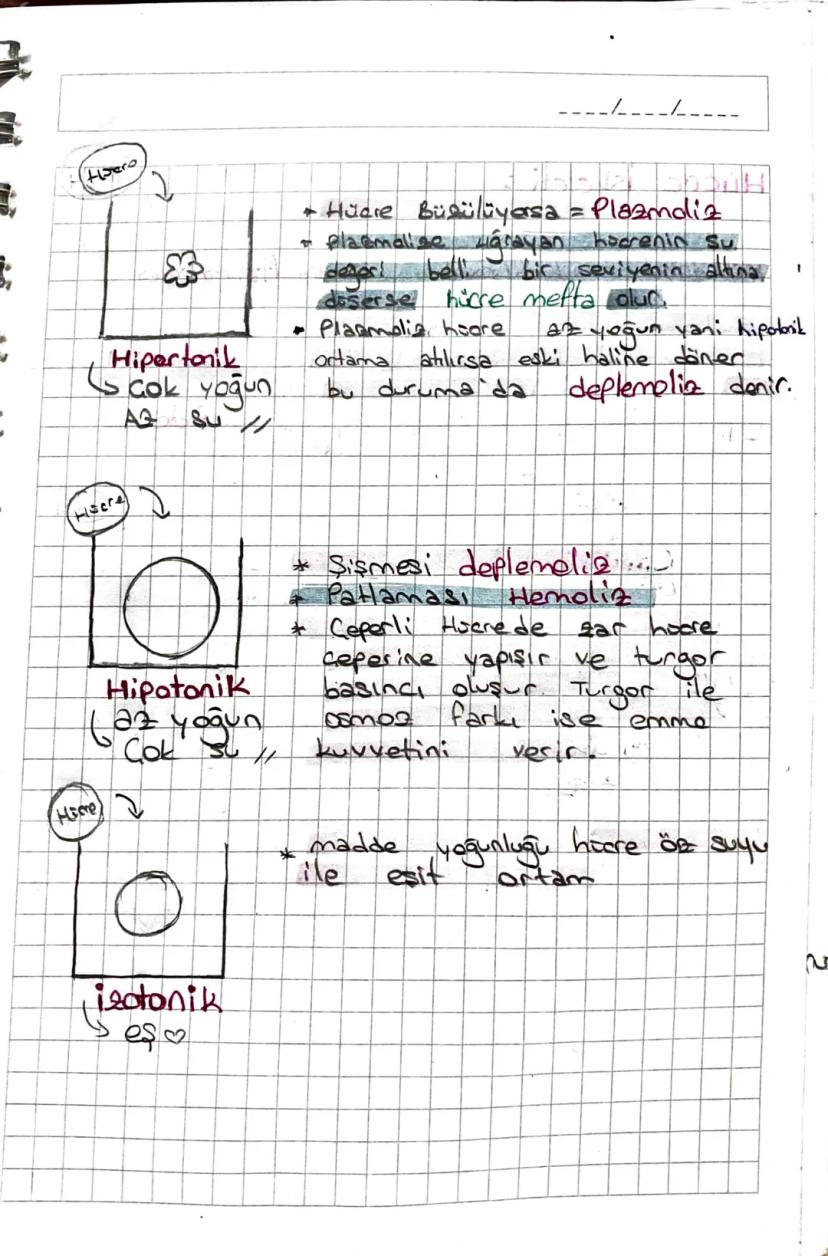 ----/----/-----
Hücre
* Hücre Büzülüyorsa = Plazmoliz
* plazmolize uğrayan hücrenin su
değeri belli bir seviyenin altına
düşerse hücre mefta olur.
* Plazmoliz hücre az yoğun yani hipotonik
ortama atılırsa eski haline döner
bu duruma'da deplemoliz denir.
Hipertonik
Çok yoğun
Az su //
Hücre
* Şişmesi deplemoliz
* Patlaması Hemoliz
* Çeperli Hücrede zar hücre
çeperine yapışır ve turgor
basıncı oluşur. Turgor ile
osmoz farkı ise emme
kuvvetini verir.
Hipotonik
az yoğun
Çok su //
Hücre
* madde yoğunluğu hücre öz suyu
ile eşit ortam
izotonik
eş ♡
2